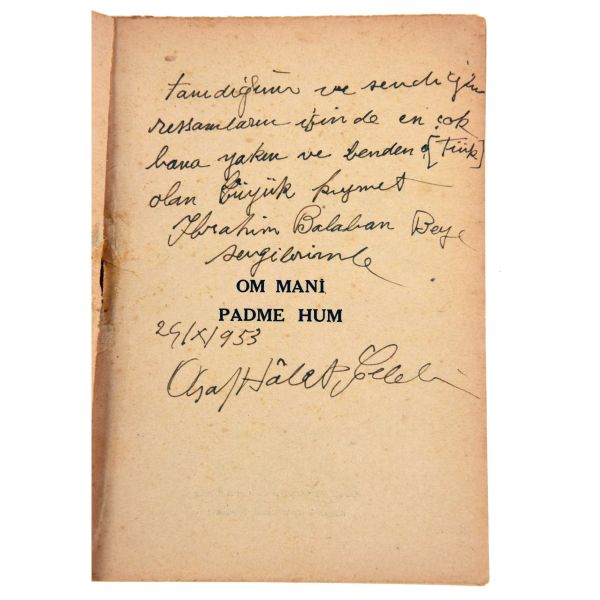 tanıdığım ve sevdiğim
ressamların içinde en çok
bana yakın ve benden [Türk]
olan büyük kıymet
İbrahim Balaban Beye
sevgilerimle
OM MANİ
PADME HUM
29/X/953
Asaf Hâlet Çelebi